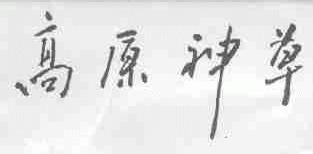 高原神草